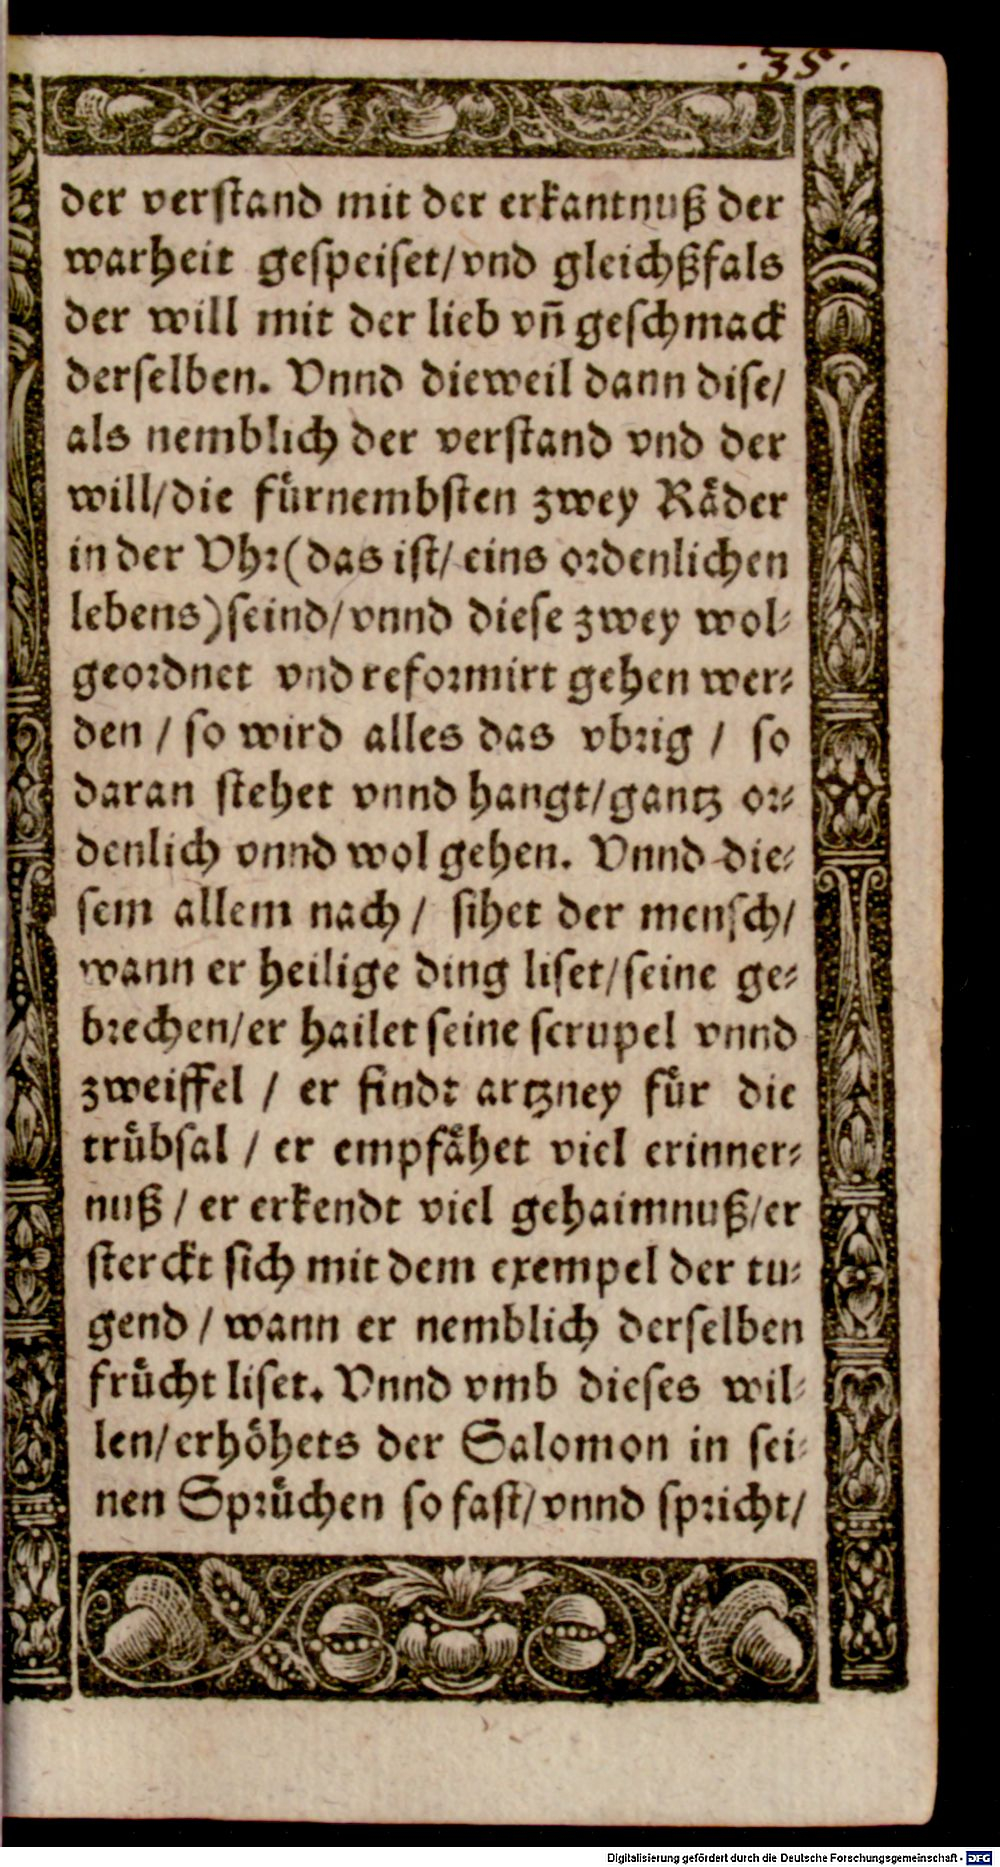 ·35·
der verstand mit der erkantnuß der
warheit gespeiset/vnd gleichßfals
der will mit der lieb vñ geschmack
derselben. Vnnd dieweil dann dise/
als nemblich der verstand vnd der
will/die fuͤrnembsten zwey Raͤder
in der Vhr(das ist/ eins ordenlichen
lebens)seind/vnnd diese zwey wol-
geordnet vnd reformirt gehen wer-
den / so wird alles das vbrig / so
daran stehet vnnd hangt/gantz or-
denlich vnnd wol gehen. Vnnd die-
sem allem nach / sihet der mensch/
wann er heilige ding liset/seine ge-
brechen/er hailet seine scrupel vnnd
zweiffel / er findt artzney fuͤr die
truͤbsal / er empfaͤhet viel erinner-
nuß / er erkendt viel gehaimnuß/er
sterckt sich mit dem exempel der tu-
gend / wann er nemblich derselben
fruͤcht liset. Vnnd vmb dieses wil-
len/erhoͤhets der Salomon in sei-
nen Spruͤchen so fast/vnnd spricht/
Digitalisierung gefördert durch die Deutsche Forschungsgemeinschaft - DFG